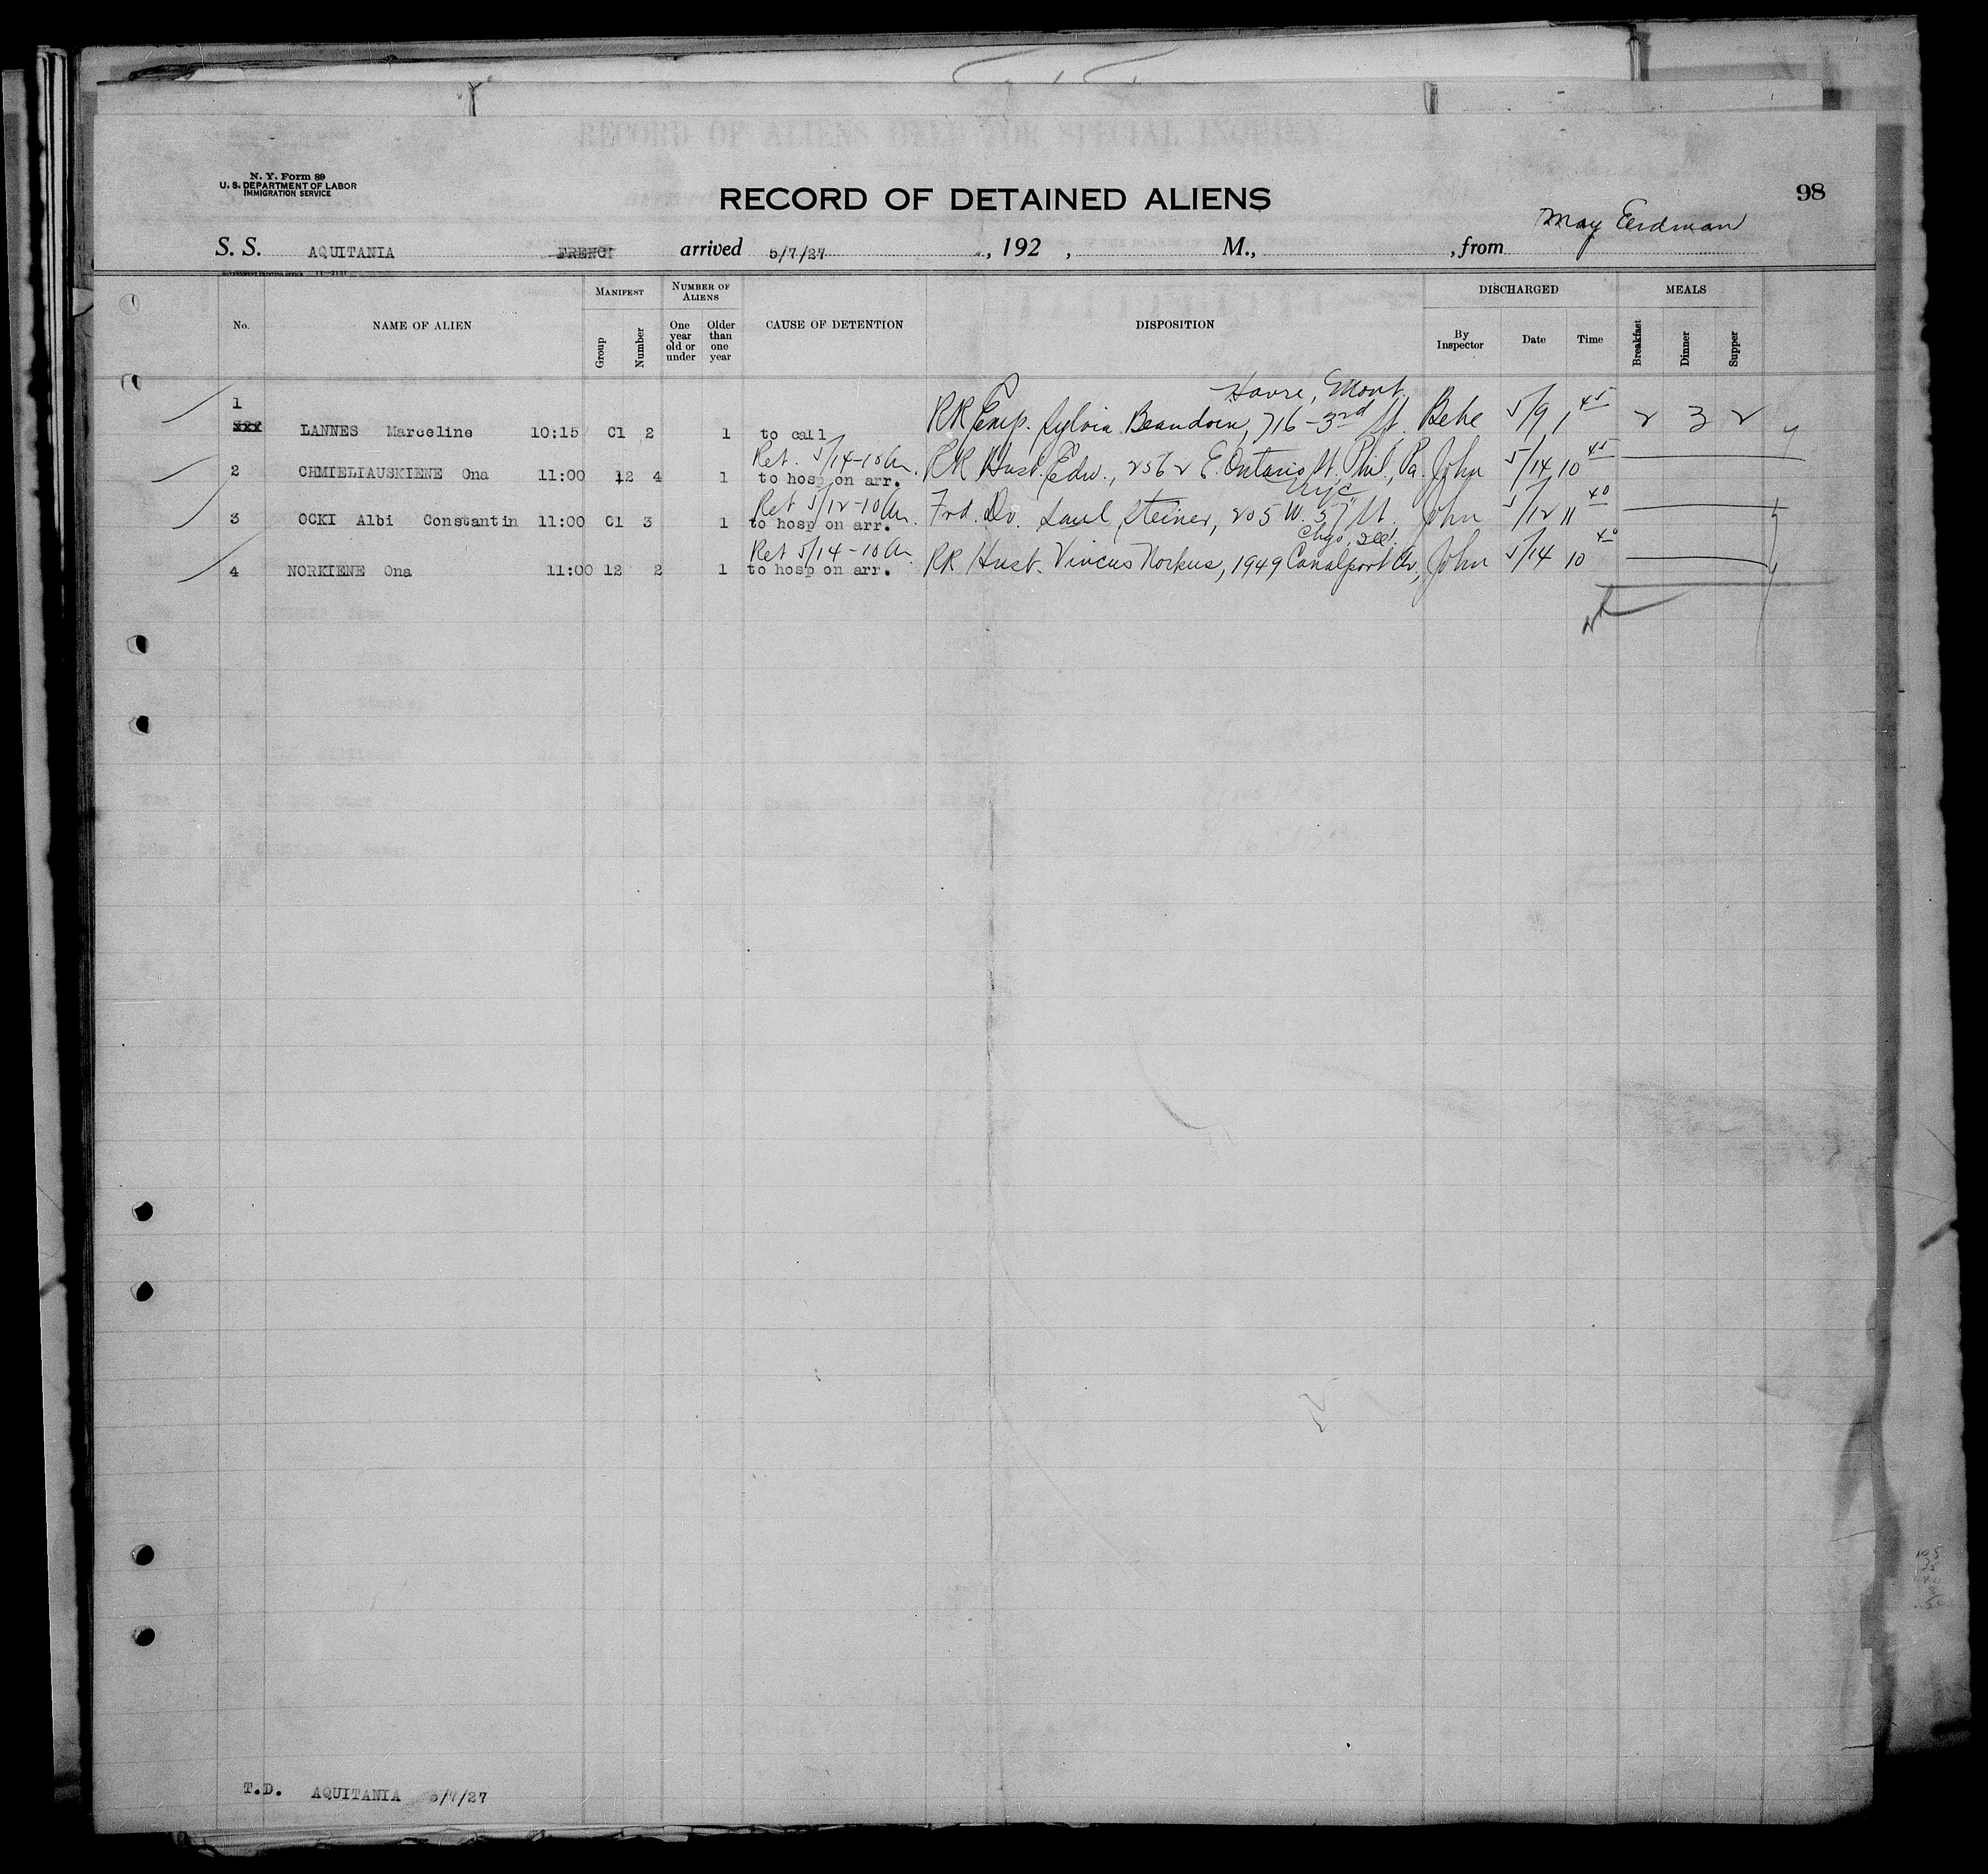 N. Y. Form 89
U. S. DEPARTMENT OF LABOR
IMMIGRATION SERVICE
RECORD OF DETAINED ALIENS
98
May Eerdman
S. S. AQUITANIA FRENCH arrived 5/7/27, 192 , M., , from
GOVERNMENT PRINTING OFFICE
No.
NAME OF ALIEN
MANIFEST
Group
Number
NUMBER OF ALIENS
One year old or under
Older than one year
CAUSE OF DETENTION
DISPOSITION
DISCHARGED
By Inspector
Date
Time
MEALS
Breakfast
Dinner
Supper
Havre, Mont.
1 LANNES Marceline 10:15 C1 2 1 to call RR Emp. Sylvia Beaudoin, 716-3rd St. Behe 5/9 1 45 2 3 2
Ret. 5/14-10 AM.
2 CHMIELIAUSKIENE Ona 11:00 12 4 1 to hosp on arr. RR Husb. Edw., 2562 E. Ontario St. Phil, Pa. John 5/14 10 45
Ret 5/12-10 AM. NYC
3 OCKI Albi Constantin 11:00 C1 3 1 to hosp on arr. Frd. Dr. Saul Steiner, 205 W. 57" St. John 5/12 11 40
Ret 5/14-10 AM. Chgo, Ill.
4 NORKIENE Ona 11:00 12 2 1 to hosp on arr. RR Husb. Vincus Norkus, 1949 Canalport Av, John 5/14 10 40
T.D. AQUITANIA 5/7/27